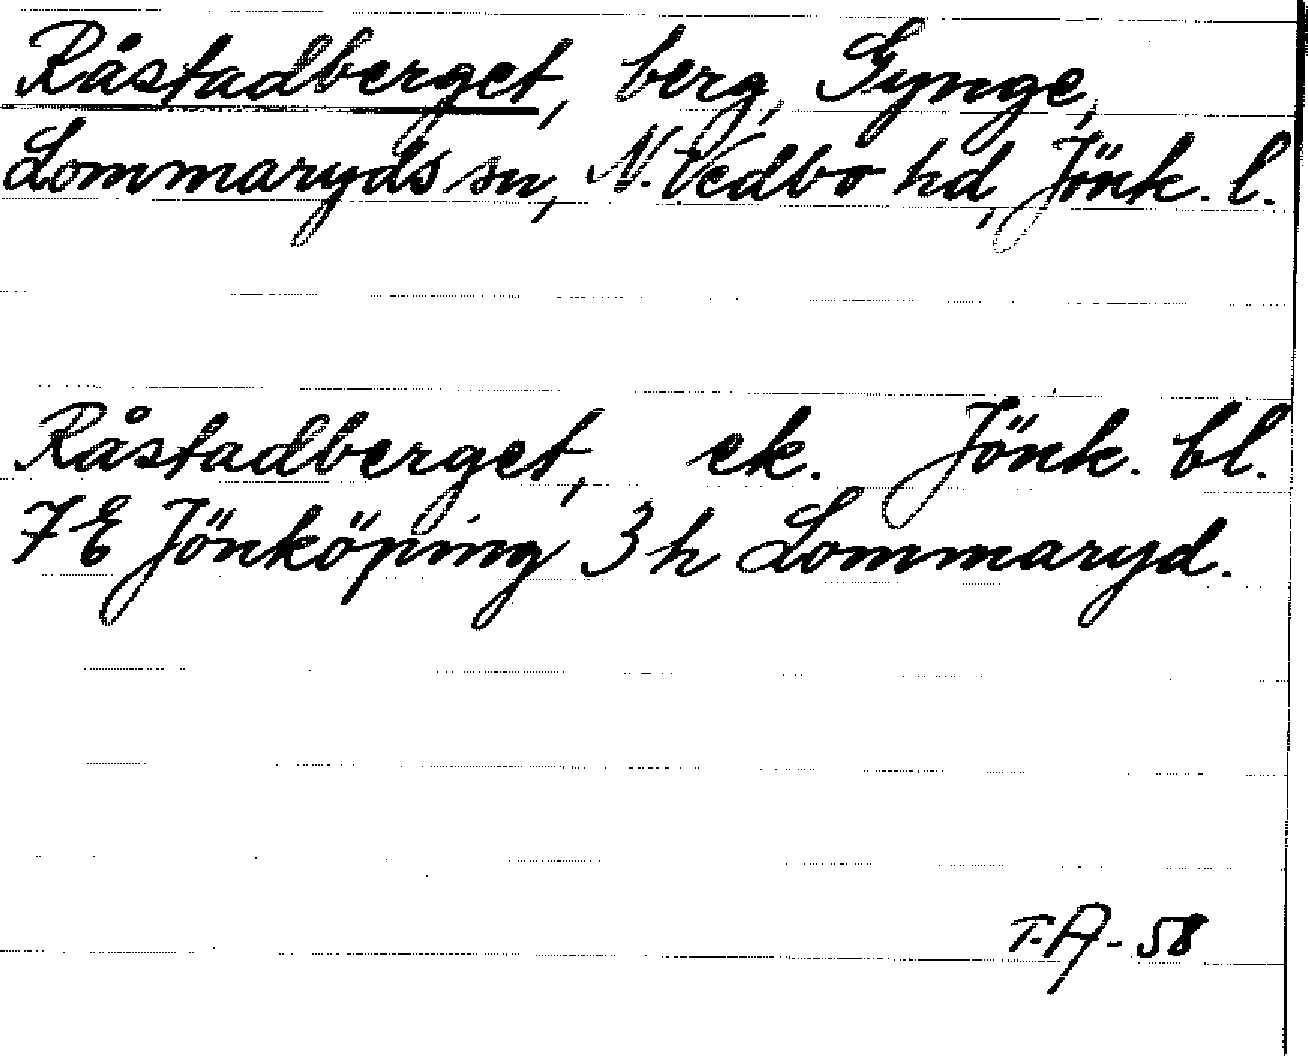 Råstadberget, berg, Gynge,
Lommaryds sn, N. Vedbo hd, Jönk. l.
Råstadberget, ek. Jönk. bl.
7E Jönköping 3h Lommaryd.
T.A-58